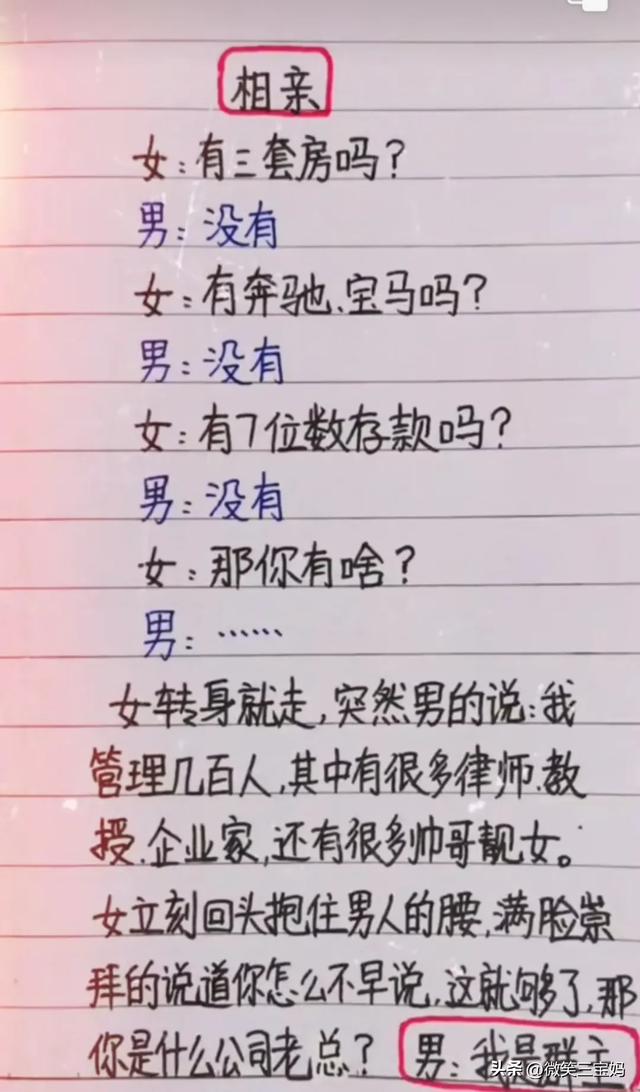 相亲
女：有三套房吗？
男：没有
女：有奔驰、宝马吗？
男：没有
女：有7位数存款吗？
男：没有
女：那你有啥？
男：……
女转身就走，突然男的说：我
管理几百人，其中有很多律师、教
授、企业家，还有很多帅哥靓女。
女立刻回头抱住男人的腰，满脸崇
拜的说道你怎么不早说，这就够了，那
你是什么公司老总？ 男：我是群主
头条 @微笑三宝妈